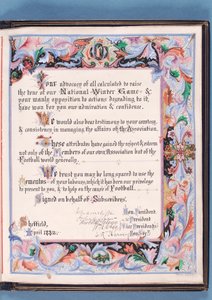 Your advocacy of all calculated to raise
the tone of our National Winter Game &
your manly opposition to actions degrading to it,
have won for you our admiration & confidence.
We would also bear testimony to your courtesy,
& consistency in managing the affairs of the Association.
These attributes have gained the respect & esteem
not only of the Members of our own Association but of the
Football world generally.
We trust you may be long spared to use the
Mementos of your labours, which it has been our privilege
to present to you, & to help on the cause of Football.
Signed on behalf of the Subscribers,
Hon. President
President
Vice Presidents
Sheffield,
April